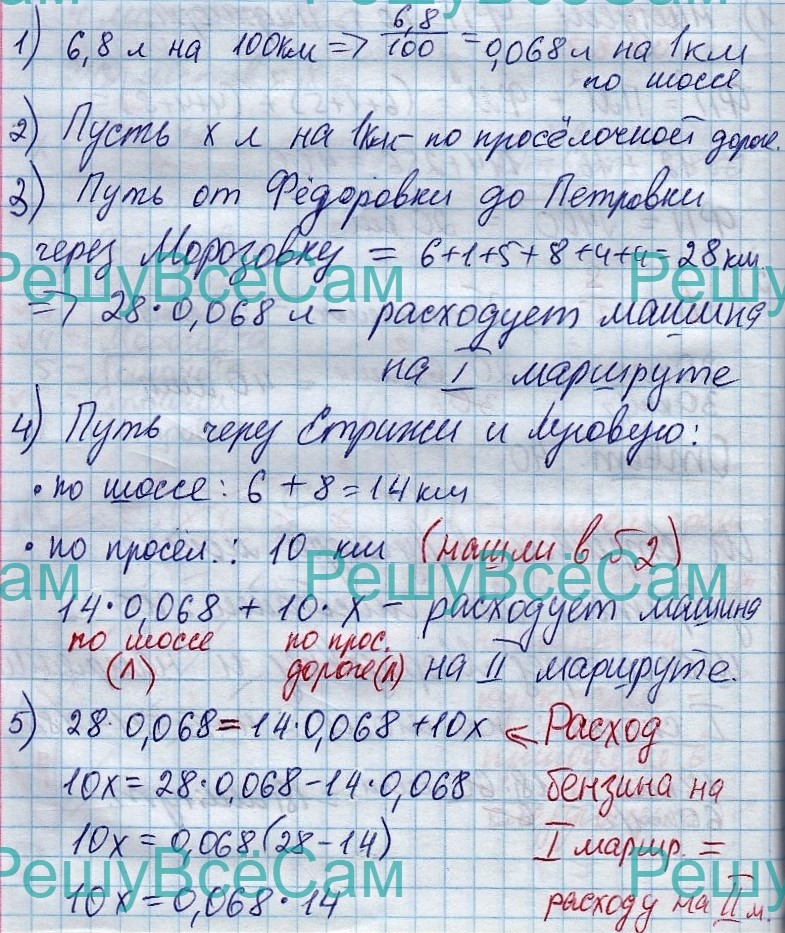 РешуВсёСам РешуВсёСам
1) 6,8 л на 100км => 6,8/100 = 0,068 л на 1км
по шоссе
2) Пусть х л на 1км - по просёлочной дороге.
3) Путь от Фёдоровки до Петровки
через Морозовку = 6+1+5+8+4+4=28 км.
РешуВсёСам РешуВсёСам
=> 28·0,068 л - расходует машина
на I маршруте
4) Путь через Стрижи и Луговую:
• по шоссе: 6 + 8 = 14 км
• по просел.: 10 км (нашли в б2)
Сам РешуВсёСам
14·0,068 + 10·х - расходует машина
по шоссе по прос.
(л) дороге(л) на II маршруте.
5) 28·0,068 = 14·0,068 + 10х ← Расход
10х = 28·0,068 - 14·0,068 бензина на
10х = 0,068(28-14) I маршр. =
РешуВсёСам РешуВсёСам
10х = 0,068·14 расходу на II м.